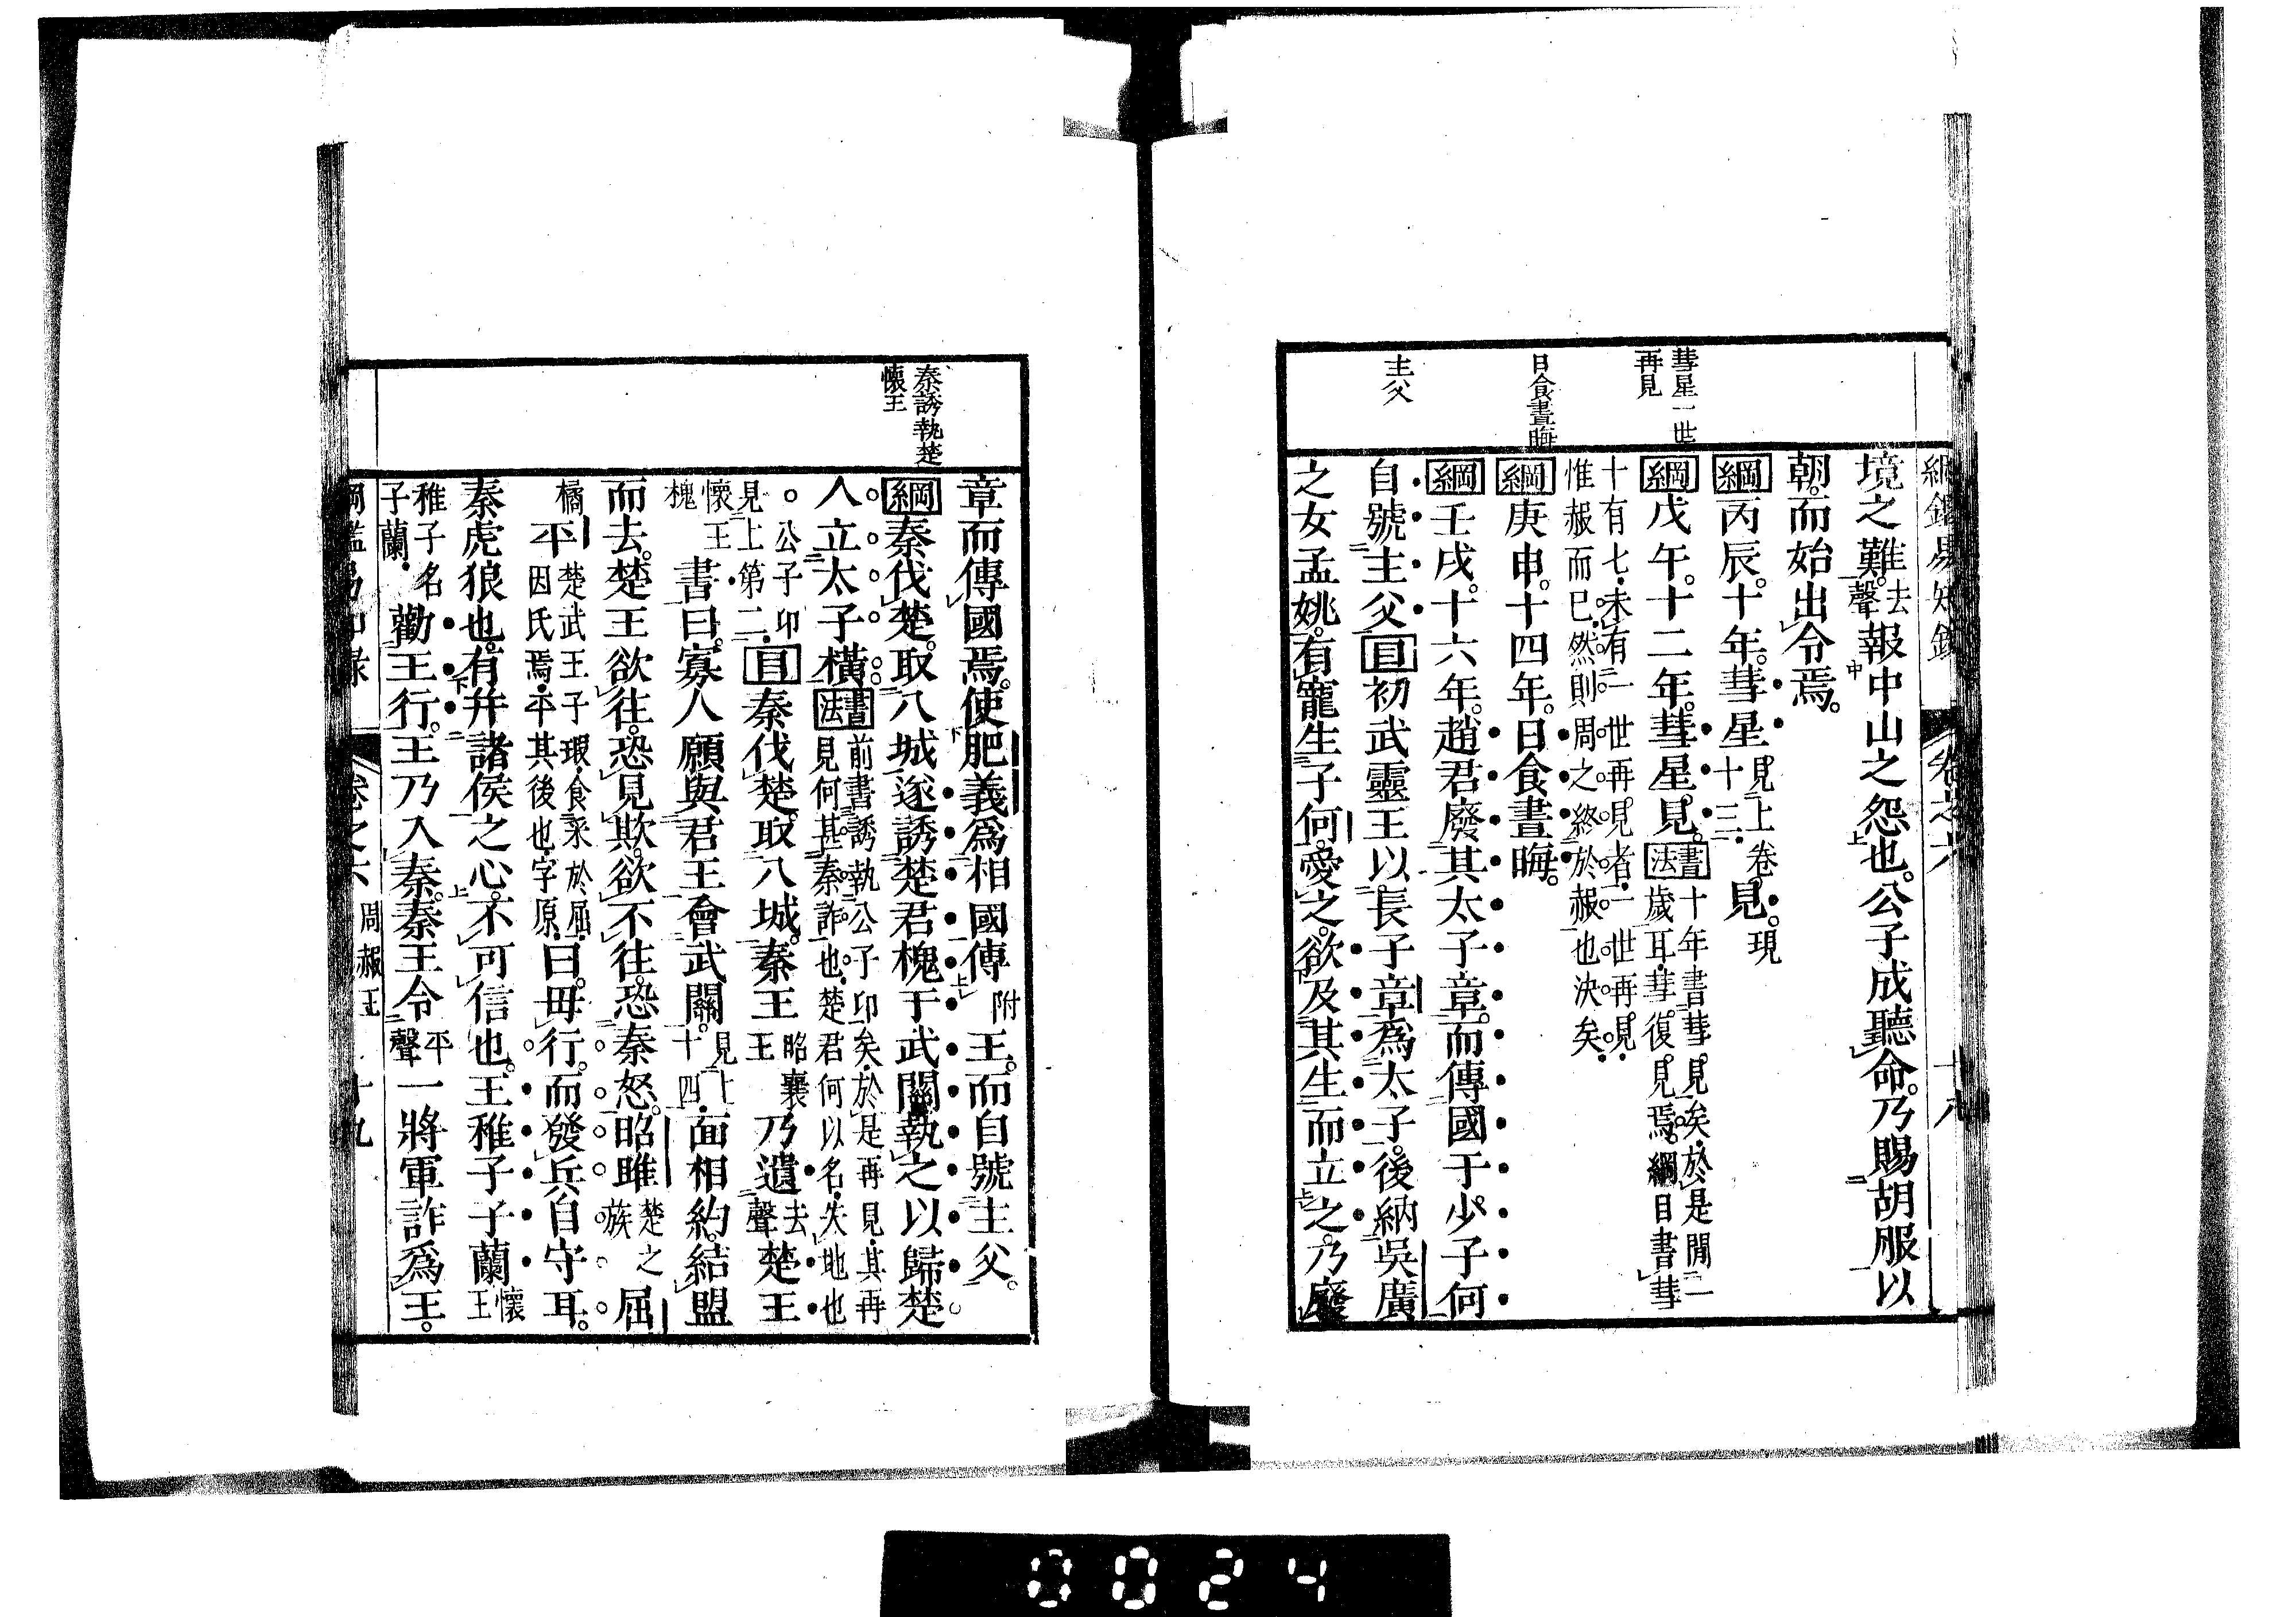 綱鑑易知錄 卷之六 十八
彗星一世
再見
日食晝晦
主父
境之難去聲報中山之怨也公子成聽命乃賜胡服以
朝而始出令焉
綱丙辰十年彗星見上卷十三見現
綱戊午十二年彗星見書法十年書彗見矣於是閒二歲耳彗復見焉綱目書彗
十有七未有一世再見者一世再見惟赧而已然則周之終於赧也決矣
綱庚申十四年日食晝晦
綱壬戌十六年趙君廢其太子章而傳國于少子何
自號主父目初武靈王以長子章爲太子後納吳廣
之女孟姚有寵生子何愛之欲及其生而立之乃廢
秦誘執楚
懷王
章而傳國焉使肥義爲相國傅附王而自號主父
綱秦伐楚取八城遂誘楚君槐于武關執之以歸楚
人立太子橫書法前書誘執公子卬矣於是再見其再見何甚秦詐也楚君何以名失地也
公子卬見上第二懷王槐目秦伐楚取八城秦王昭襄王乃遺去聲楚王
書曰寡人願與君王會武關見上十四面相約結盟
而去楚王欲往恐見欺欲不往恐秦怒昭睢楚之族屈
橘平楚武王子瑕食采於屈因氏焉平其後也字原曰毋行而發兵自守耳
秦虎狼也有幷諸侯之心不可信也王稚子子蘭懷王
稚子名子蘭勸王行王乃入秦秦王令平聲一將軍詐爲王
綱鑑易知錄 卷之六 周赧王 十九
0024